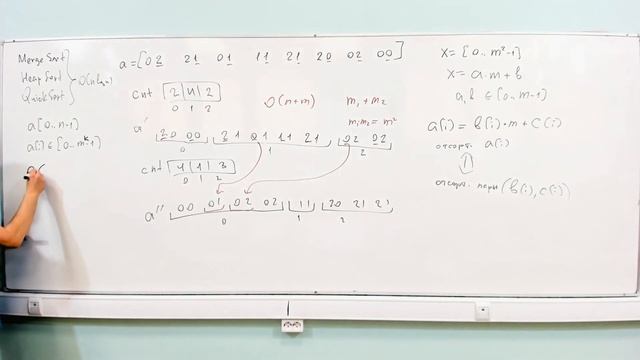 MergeSort
HeapSort
QuickSort
O(n log n)
a[0..n-1]
a[i] ∈ [0..m^k-1]
O(
a = [02 21 01 11 21 20 02 00]
cnt [2|4|2]
0 1 2
O(n+m)
m₁ + m₂
m₁m₂ = m²
a' 20 00 21 01 11 21 02 02
0 1 2
cnt [4|1|3]
0 1 2
a'' 00 01 02 02 11 20 21 21
0 1 2
x = [0..m²-1]
x = a·m + b
a, b ∈ [0..m-1]
a(i) = b(i)·m + c(i)
отсорт. a(i)
⇕
отсорт. пары (b(i), c(i))